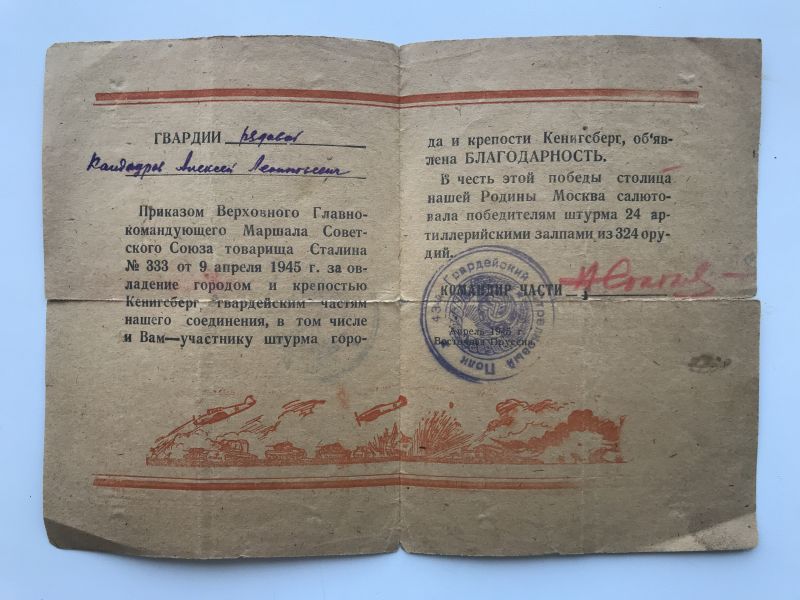 ГВАРДИИ рядовой
Алексей
Приказом Верховного Главно-
командующего Маршала Совет-
ского Союза товарища Сталина
№ 333 от 9 апреля 1945 г. за ов-
ладение городом и крепостью
Кенигсберг гвардейским частям
нашего соединения, в том числе
и Вам—участнику штурма горо-
да и крепости Кенигсберг, об'яв-
лена БЛАГОДАРНОСТЬ.
В честь этой победы столица
нашей Родины Москва салюто-
вала победителям штурма 24 ар-
тиллерийскими залпами из 324 ору-
дий.
КОМАНДИР ЧАСТИ
Апрель 1945 г.
Восточная Пруссия
Гвардейский Стрелковый Полк